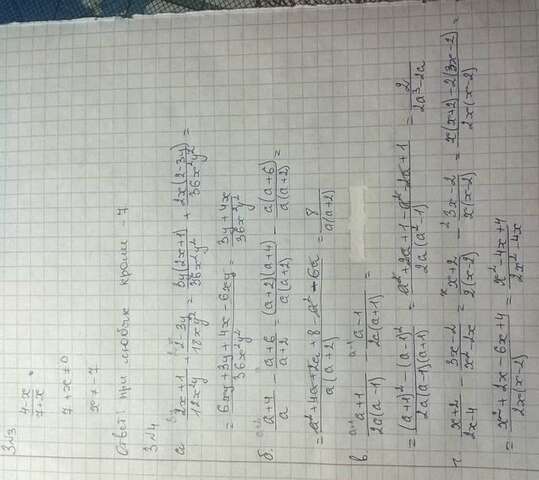 3№3
4-x / 7+x
7 + x ≠ 0
x ≠ -7
Ответ: при любых кроме -7
3№4
а (2x+1)/(12x²y) + (2-3y)/(18xy²) = (3y(2x+1))/(36x²y²) + (2x(2-3y))/(36x²y²) =
= (6xy+3y+4x-6xy)/(36x²y²) = (3y+4x)/(36x²y²)
б. (a+4)/a - (a+6)/(a+2) = ((a+2)(a+4))/(a(a+2)) - (a(a+6))/(a(a+2)) =
= (a²+4a+2a+8-a²-6a)/(a(a+2)) = 8/(a(a+2))
в (a+1)/(2a(a-1)) - (a-1)/(2a(a+1)) =
= ((a+1)²-(a-1)²)/(2a(a-1)(a+1)) = (a²+2a+1-a²-2a+1)/(2a(a²-1)) = 2/(2a³-2a)
г (x+2)/(2x-4) - (3x-2)/(x²-2x) = (x+2)/(2(x-2)) - (3x-2)/(x(x-2)) = (x(x+2)-2(3x-2))/(2x(x-2)) =
= (x²+2x-6x+4)/(2x(x-2)) = (x²-4x+4)/(2x²-4x)